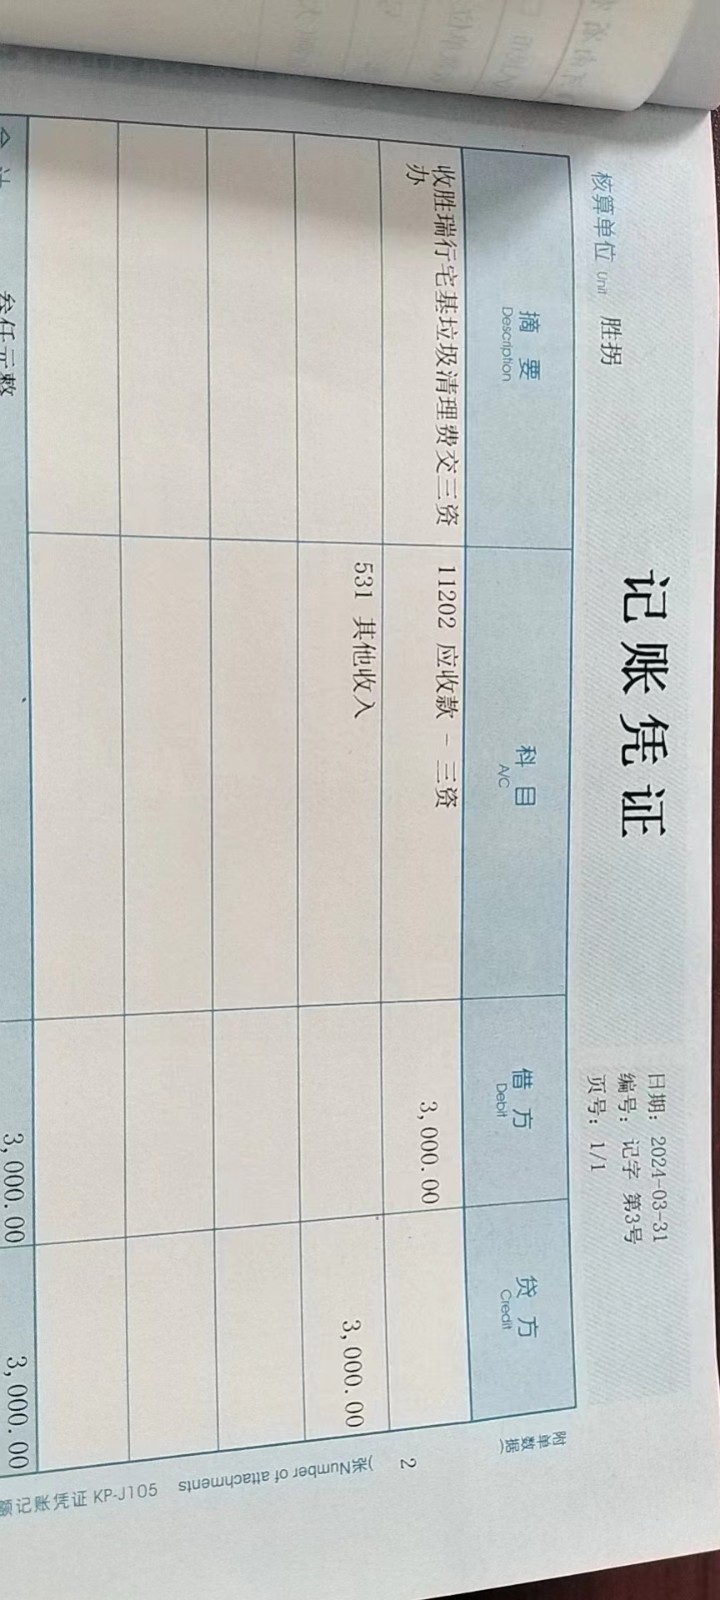 记账凭证
日期: 2024-03-31
编号: 记字 第3号
页号: 1/1
核算单位 Unit 胜拐
摘要 科目 借方 贷方
Description A/C Debit Credit
收胜瑞行宅基垃圾清理费交三资 11202 应收款 - 三资 3,000.00
办
531 其他收入 3,000.00
叁仟元整 3,000.00 3,000.00
附单数据
2
张Number of attachments
记账凭证 KP-J105